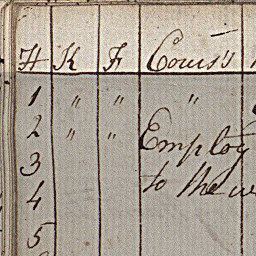 H K F Cours's
1 " " "
2 " " Employ
3
4 to the
5